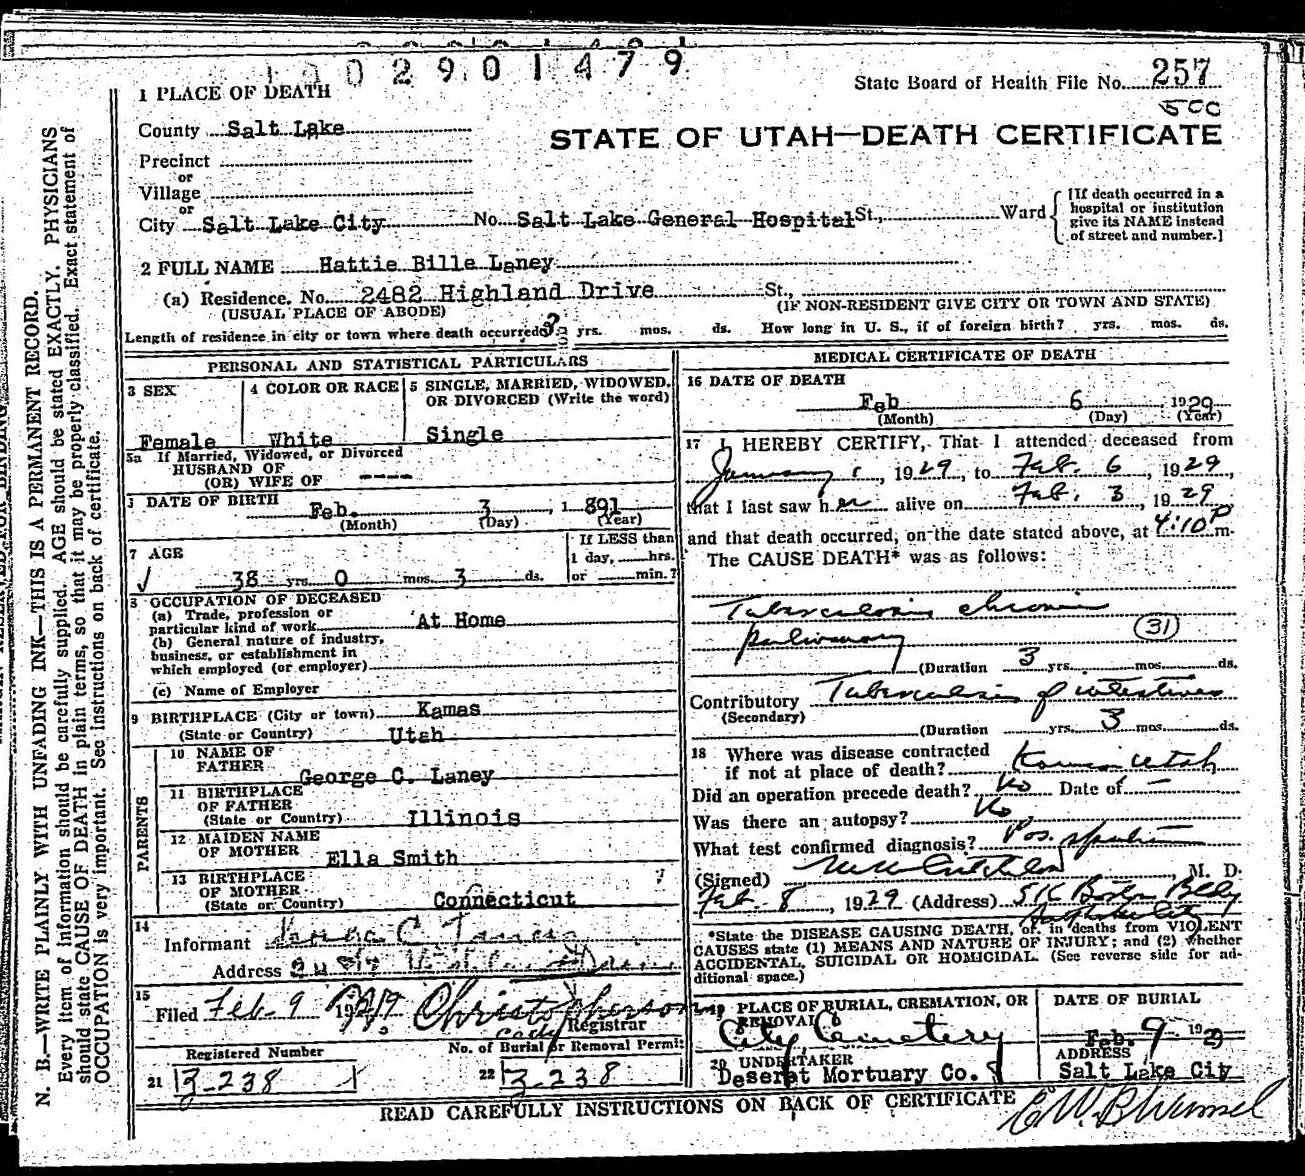 1 0 2 9 0 1 4 7 9
State Board of Health File No. 257
1 PLACE OF DEATH
County Salt Lake
STATE OF UTAH—DEATH CERTIFICATE
Precinct
or
Village
or
City Salt Lake City No. Salt Lake General Hospital St., Ward
[If death occurred in a
hospital or institution
give its NAME instead
of street and number.]
2 FULL NAME Hattie Bille Laney
(a) Residence. No. 2482 Highland Drive St.,
(USUAL PLACE OF ABODE) (IF NON-RESIDENT GIVE CITY OR TOWN AND STATE)
Length of residence in city or town where death occurred 3 yrs. mos. ds. How long in U. S., if of foreign birth? yrs. mos. ds.
PERSONAL AND STATISTICAL PARTICULARS
3 SEX
Female
4 COLOR OR RACE
White
5 SINGLE, MARRIED, WIDOWED,
OR DIVORCED (Write the word)
Single
5a If Married, Widowed, or Divorced
HUSBAND OF
(OR) WIFE OF ----
DATE OF BIRTH Feb. 3, 1891
(Month) (Day) (Year)
7 AGE
38 yrs. 0 mos. 3 ds.
If LESS than
1 day, hrs.
or min.?
8 OCCUPATION OF DECEASED
(a) Trade, profession or
particular kind of work At Home
(b) General nature of industry,
business, or establishment in
which employed (or employer)
(c) Name of Employer
9 BIRTHPLACE (City or town) Kamas
(State or Country) Utah
PARENTS
10 NAME OF
FATHER George C. Laney
11 BIRTHPLACE
OF FATHER
(State or Country) Illinois
12 MAIDEN NAME
OF MOTHER Ella Smith
13 BIRTHPLACE
OF MOTHER
(State or Country) Connecticut
14
Informant
Address
15
Filed Feb. 9 1929 Christopherson
Registrar
Registered Number
21 3-238
No. of Burial or Removal Permit
22 3-238
MEDICAL CERTIFICATE OF DEATH
16 DATE OF DEATH
Feb 6 1929
(Month) (Day) (Year)
17 I HEREBY CERTIFY, That I attended deceased from
January 1, 1929, to Feb. 6, 1929,
that I last saw her alive on Feb. 3, 1929
and that death occurred, on the date stated above, at 4:10 P m.
The CAUSE DEATH* was as follows:
Tuberculosis chronic
pulmonary (31)
(Duration 3 yrs. mos. ds.
Contributory Tuberculosis of intestines
(Secondary)
(Duration yrs. 3 mos. ds.
18 Where was disease contracted
if not at place of death? Kamas Utah
Did an operation precede death? No Date of —
Was there an autopsy? No
What test confirmed diagnosis? Pos. sputum
(Signed) , M. D.
Feb. 8, 1929 (Address)
Salt Lake City
*State the DISEASE CAUSING DEATH, or, in deaths from VIOLENT
CAUSES state (1) MEANS AND NATURE OF INJURY; and (2) whether
ACCIDENTAL, SUICIDAL OR HOMICIDAL. (See reverse side for ad-
ditional space.)
19 PLACE OF BURIAL, CREMATION, OR
REMOVAL
City Cemetery
DATE OF BURIAL
Feb. 9 1929
20 UNDERTAKER
Deseret Mortuary Co.
ADDRESS
Salt Lake City
READ CAREFULLY INSTRUCTIONS ON BACK OF CERTIFICATE
N. B.—WRITE PLAINLY WITH UNFADING INK—THIS IS A PERMANENT RECORD.
Every item of information should be carefully supplied. AGE should be stated EXACTLY. PHYSICIANS
should state CAUSE OF DEATH in plain terms, so that it may be properly classified. Exact statement of
OCCUPATION is very important. See instructions on back of certificate.